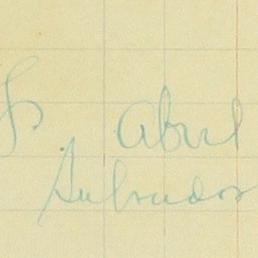 Abril
Salvador